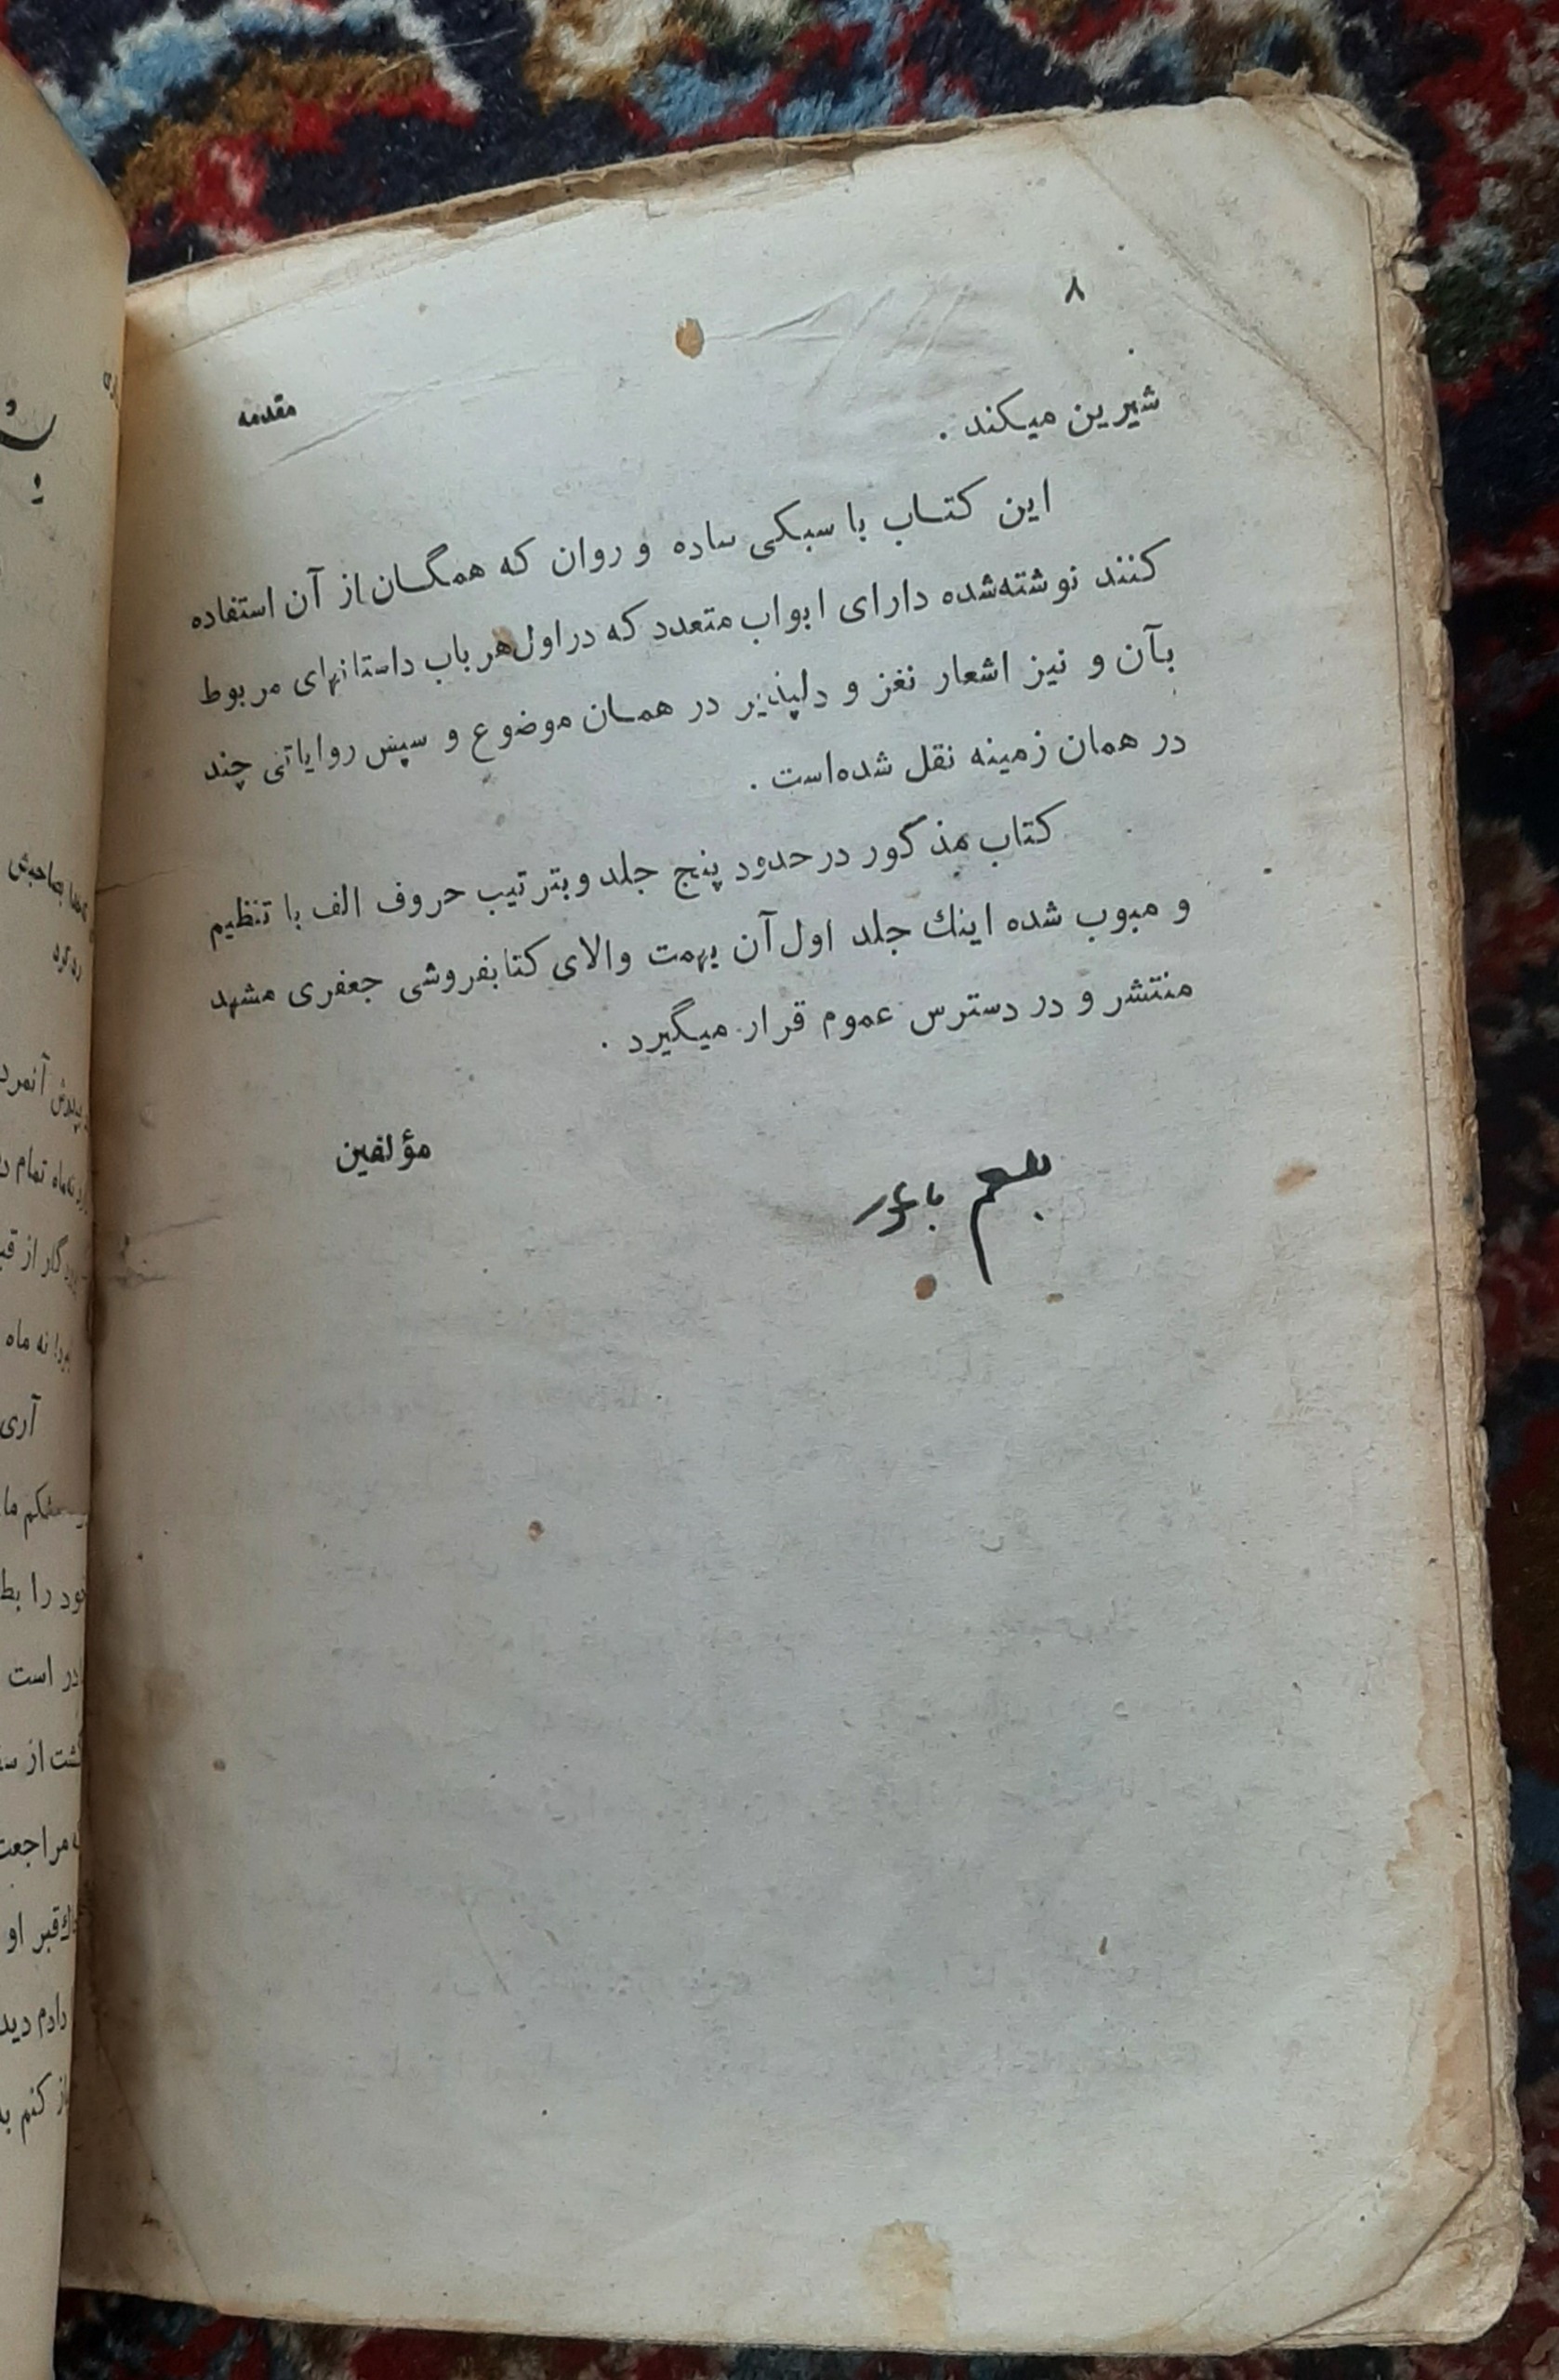 ۸
مقدمه
شیرین میکند .
این کتاب با سبکی ساده و روان که همگان از آن استفاده
کنند نوشته‌شده دارای ابواب متعدد که در اول هر باب داستانهای مربوط
بآن و نیز اشعار نغز و دلپذیر در همان موضوع و سپس روایاتی چند
در همان زمینه نقل شده‌است .
کتاب مذکور در حدود پنج جلد و بترتیب حروف الف با تنظیم
و مبوب شده اینك جلد اول آن بهمت والای کتابفروشی جعفری مشهد
منتشر و در دسترس عموم قرار میگیرد .
مؤلفین
رد کرد
آنمرد
نه‌ماه تمام
گار از
نه ماه
آری
ما
خود را
در است
گشت از
مراجعت
قبر او
دادم دید
کنم